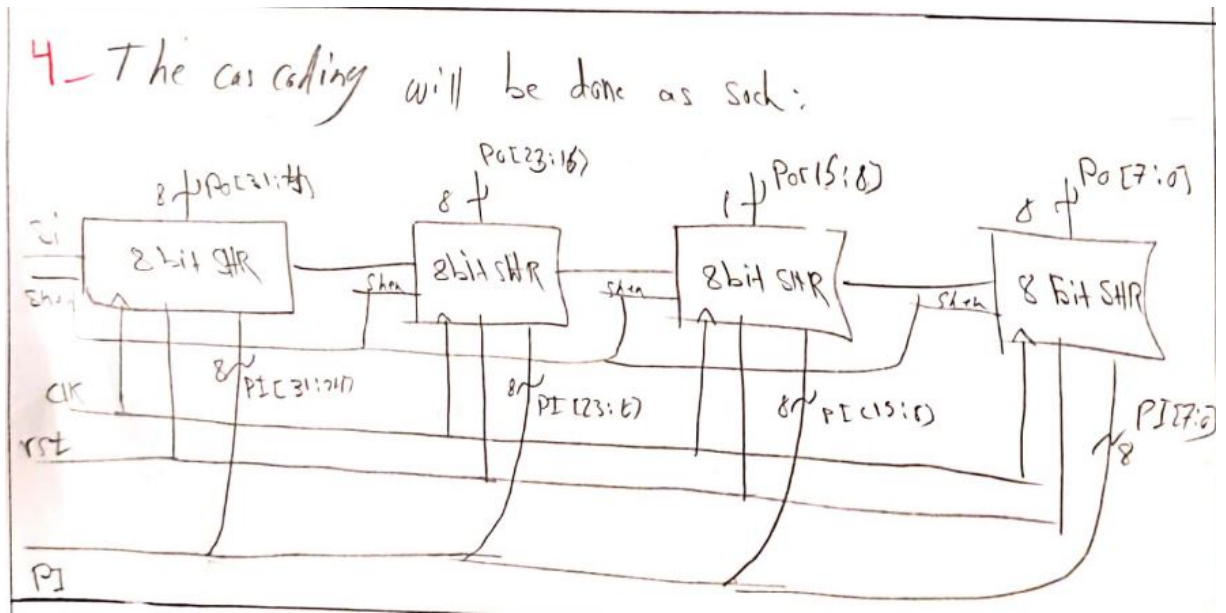 4- The cascading will be done as such:
8 Po[31:24] 8 Po[23:16] Po[15:8] 8 Po[7:0]
8 bit SHR 8bit SHR 8bit SHR 8 bit SHR
shen shen shen
8 PI[31:24] 8 PI[23:] 8 PI[15:8] PI[7:0] 8
Clk
rst
PI